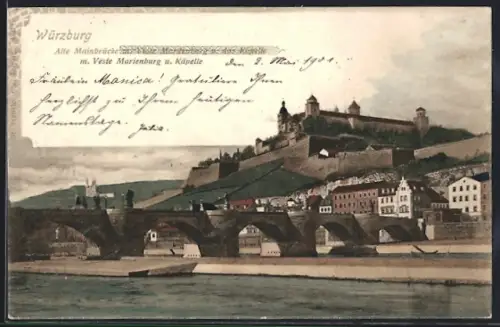 Würzburg
Alte Mainbrücke m. Véste Marienburg u. das Käpelle
m. Véste Marienburg u. Käpelle
den 2. Mai 1901.
Fräulein Monica! Gratuliere Ihnen
herzlichst zu Ihrem heutigen
Namenstage.